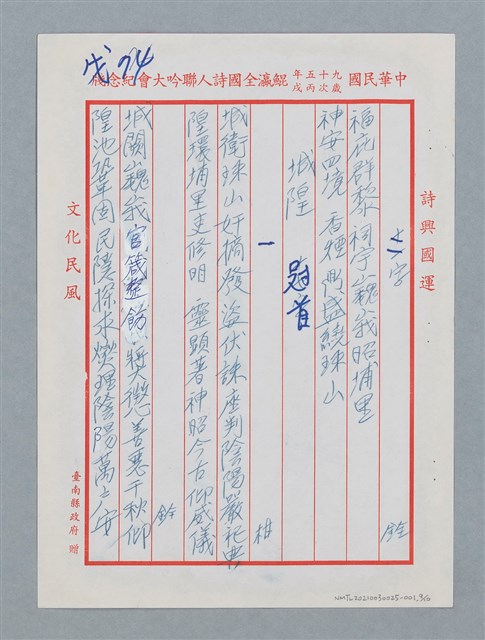 戊94
中華民國九十五年歲次丙戌鯤瀛全國詩人聯吟大會紀念牋
詩興國運
文化民風
臺南縣政府 贈
十一字
福庇群黎 祠宇巍峩昭埔里
神安四境 香煙鼎盛繞珠山
全
城隍 冠首
一
城衛珠山奸摘發 盜伏誅座判陰陽嚴祀典
隍環埔里吏修明 靈顯著神昭今古仰威儀
城闕巍峩官箴整飭獎懲善惡千秋仰
隍池鞏固民隱探求燮理陰陽萬上安
NMTL20210030025-001_96